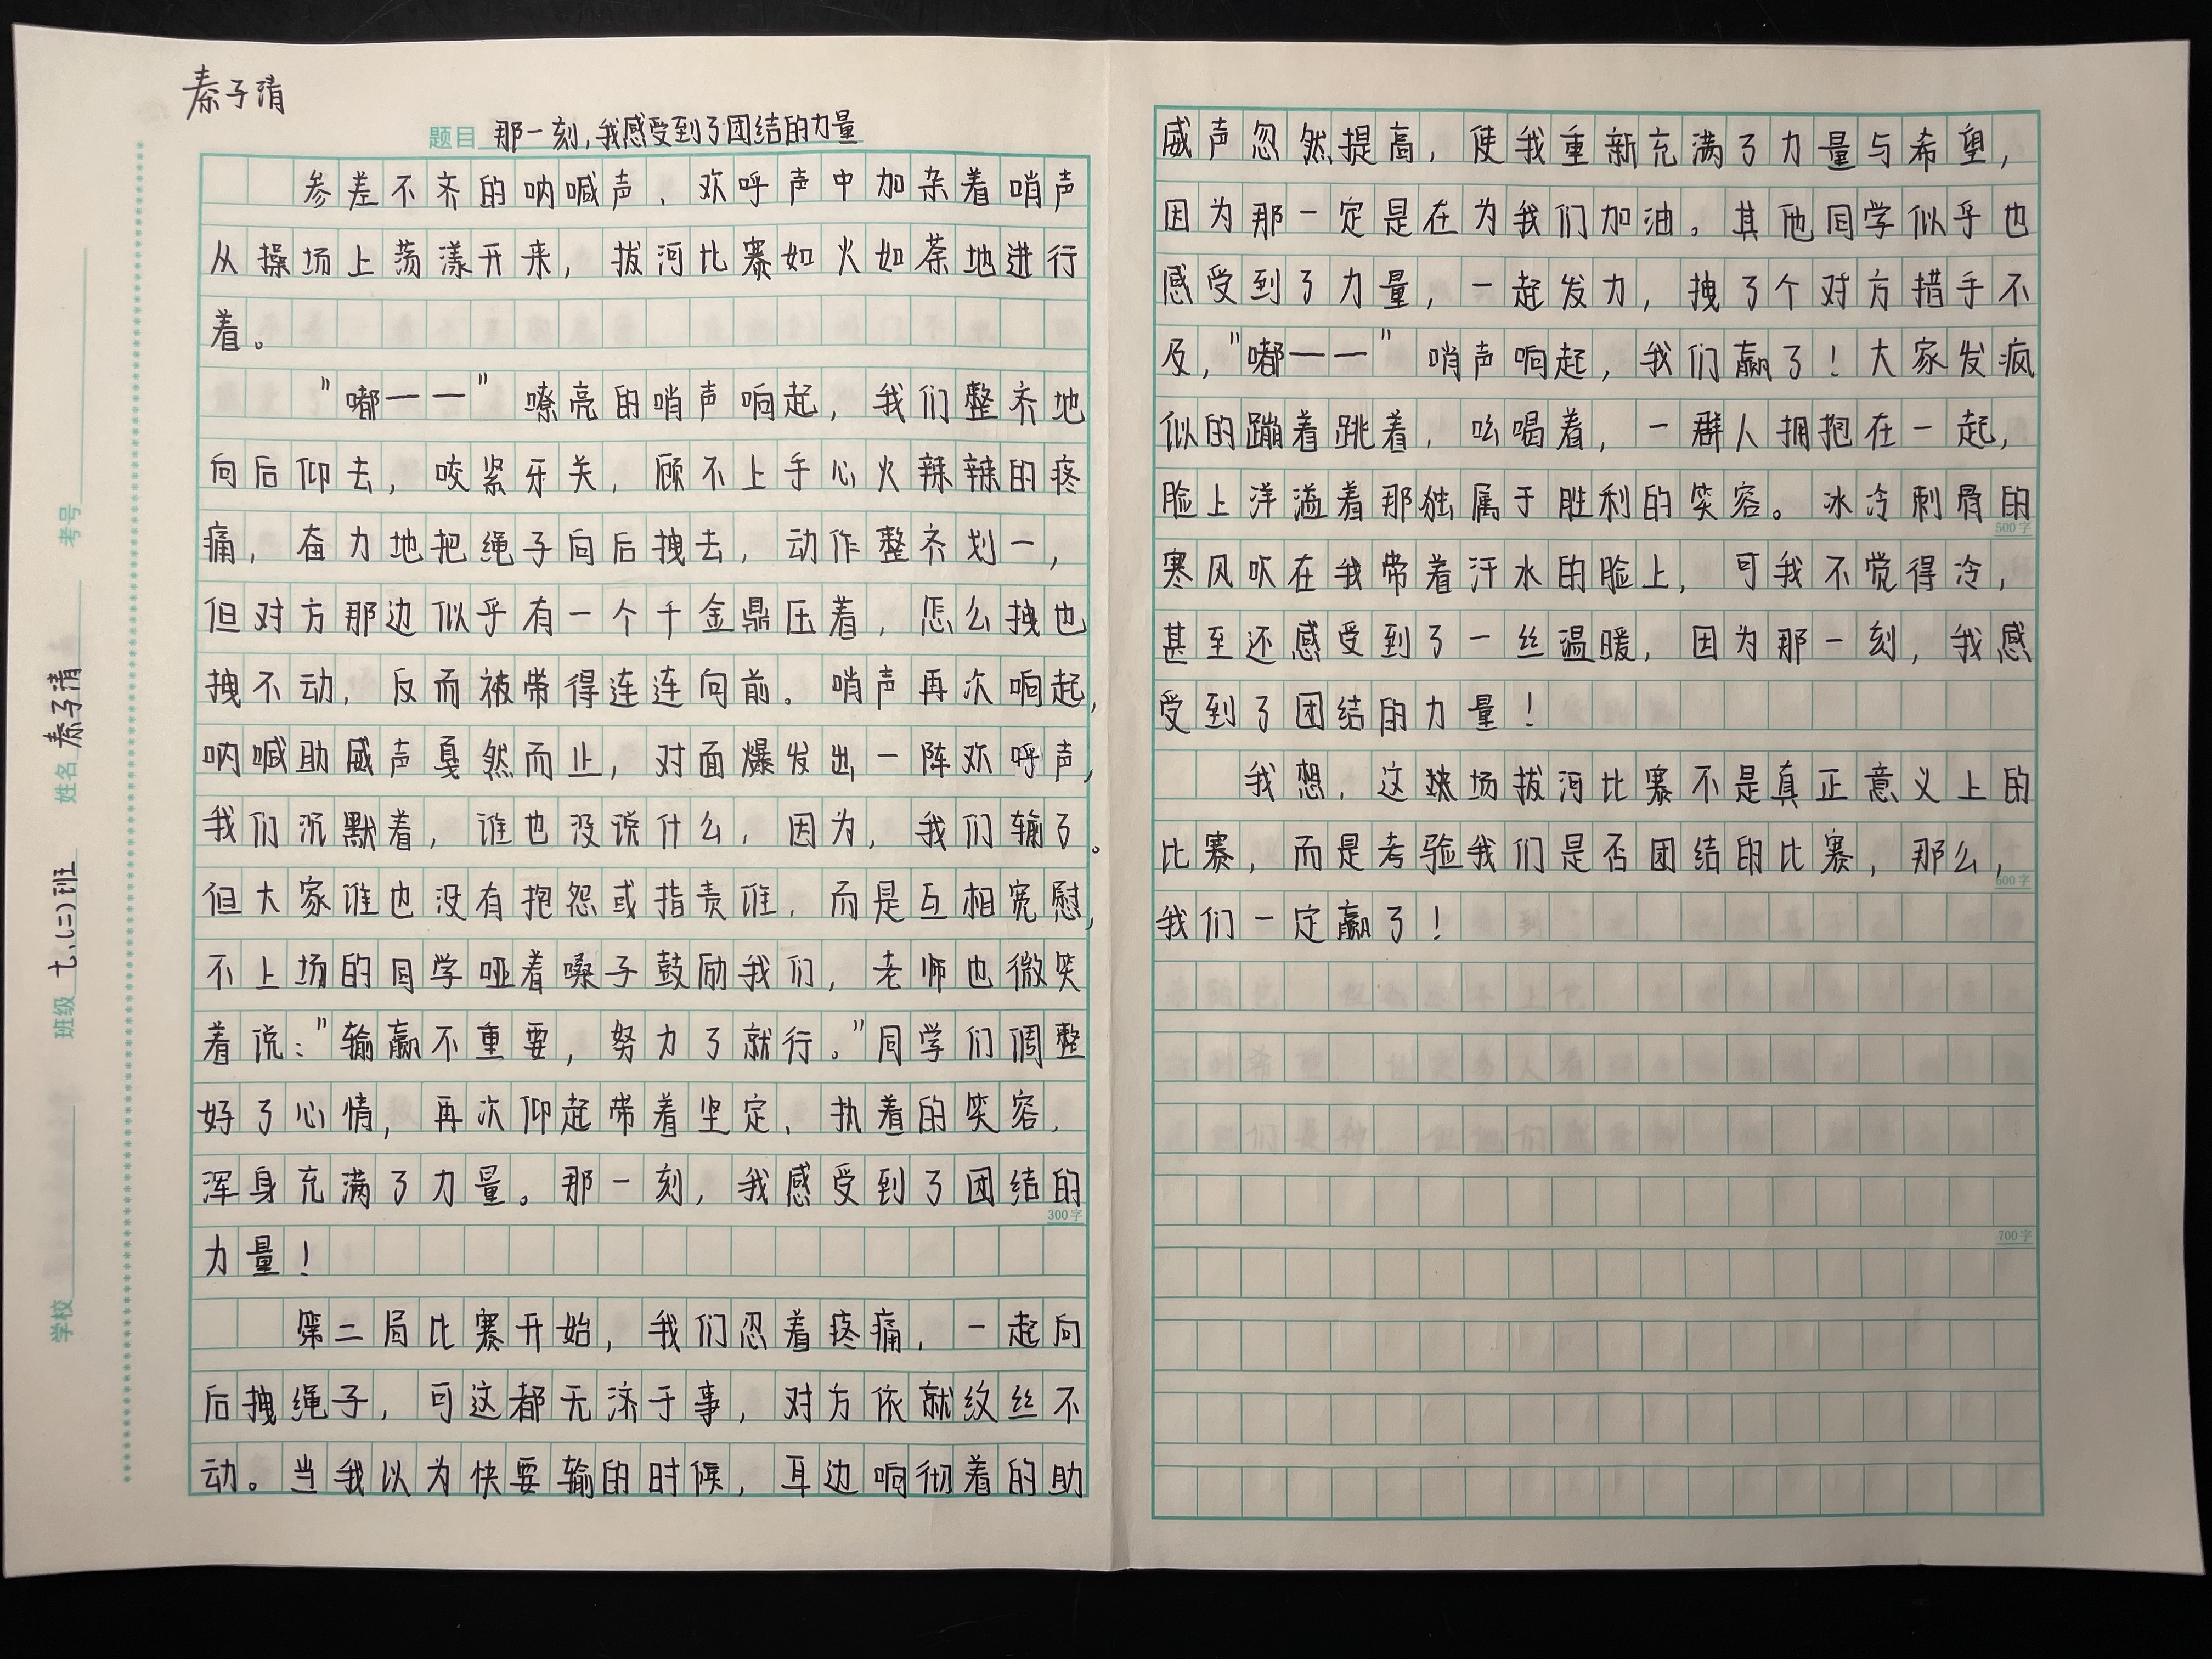 秦子清
题目 那一刻,我感受到了团结的力量
参差不齐的呐喊声、欢呼声中加杂着哨声
从操场上荡漾开来，拔河比赛如火如荼地进行
着。
"嘟——"嘹亮的哨声响起，我们整齐地
向后仰去，咬紧牙关，顾不上手心火辣辣的疼
痛，奋力地把绳子向后拽去，动作整齐划一，
但对方那边似乎有一个千金鼎压着，怎么拽也
拽不动，反而被带得连连向前。哨声再次响起，
呐喊助威声戛然而止，对面爆发出一阵欢呼声，
我们沉默着，谁也没说什么，因为，我们输了。
但大家谁也没有抱怨或指责谁，而是互相宽慰，
不上场的同学哑着嗓子鼓励我们，老师也微笑
着说："输赢不重要，努力了就行。"同学们调整
好了心情，再次仰起带着坚定、执着的笑容，
浑身充满了力量。那一刻，我感受到了团结的
300字
力量！
第二局比赛开始，我们忍着疼痛，一起向
后拽绳子，可这都无济于事，对方依就纹丝不
动。当我以为快要输的时候，耳边响彻着的助
威声忽然提高，使我重新充满了力量与希望，
因为那一定是在为我们加油。其他同学似乎也
感受到了力量，一起发力，拽了个对方措手不
及，"嘟——"哨声响起，我们赢了！大家发疯
似的蹦着跳着，吆喝着，一群人拥抱在一起，
脸上洋溢着那独属于胜利的笑容。冰冷刺骨的
500字
寒风吹在我带着汗水的脸上，可我不觉得冷，
甚至还感受到了一丝温暖，因为那一刻，我感
受到了团结的力量！
我想，这场拔河比赛不是真正意义上的
比赛，而是考验我们是否团结的比赛，那么，
600字
我们一定赢了！
700字
学校 班级 七.(三)班 姓名 秦子清 考号